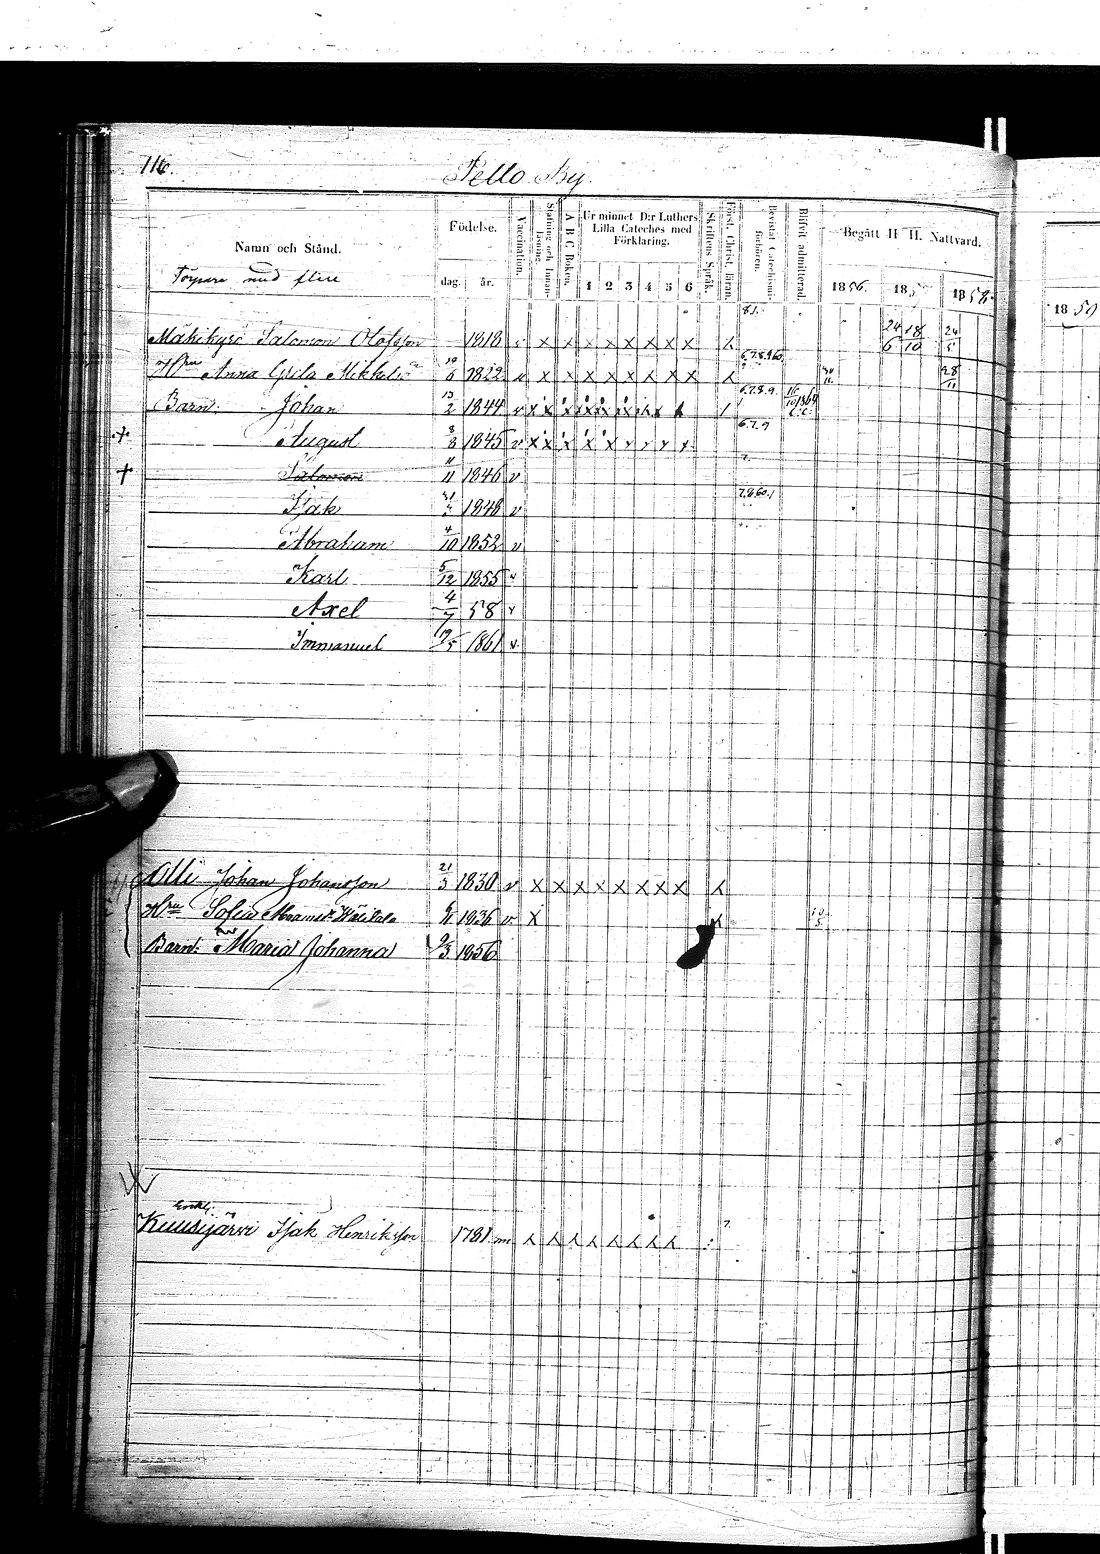 116.
Pello By.
Namn och Stånd. Födelse. Vaccination. Stafning och Innanläsning. A B C Boken. Ur minnet D:r Luthers Lilla Cateches med Förklaring. Skriftens Språk. Först. Christ. läran. Bevistat Catechismiförhören. Blifvit admitterad. Begått H H. Nattvard.
dag. år. 1 2 3 4 5 6 1856. 185 1858. 1859
Torpare med flere
81.
Mäkikyrö Salomon Olofsson 1818 v x x x x x x x x 24/6 18/10 24/5
Hru Anna Greta Mikkelsdr 10/6 1822 v x x x x x x x x 6.7.8.9.60. 28/11
Barn: Johan 13/2 1844 v x x x x x x x x 6.7.8.9. 16/10 1864
+ August 8/8 1845 v x x x x x x x x 6.7.9
+ Salomon 11/11 1846 v
Isak 1848 v 7.8.60.1
Abraham 4/10 1852 v
Karl 5/12 1855 v
Axel 4/7 58 v
Immanuel 19/5 1861 v
Olli Johan Johansson 21/3 1830 v x x x x x x x x
Hru Sofia 1836 v x 10/5
Barn: Maria Johanna 9/3 1856
Kuusijärvi Isak Henriksson 1781 m x x x x x x x x